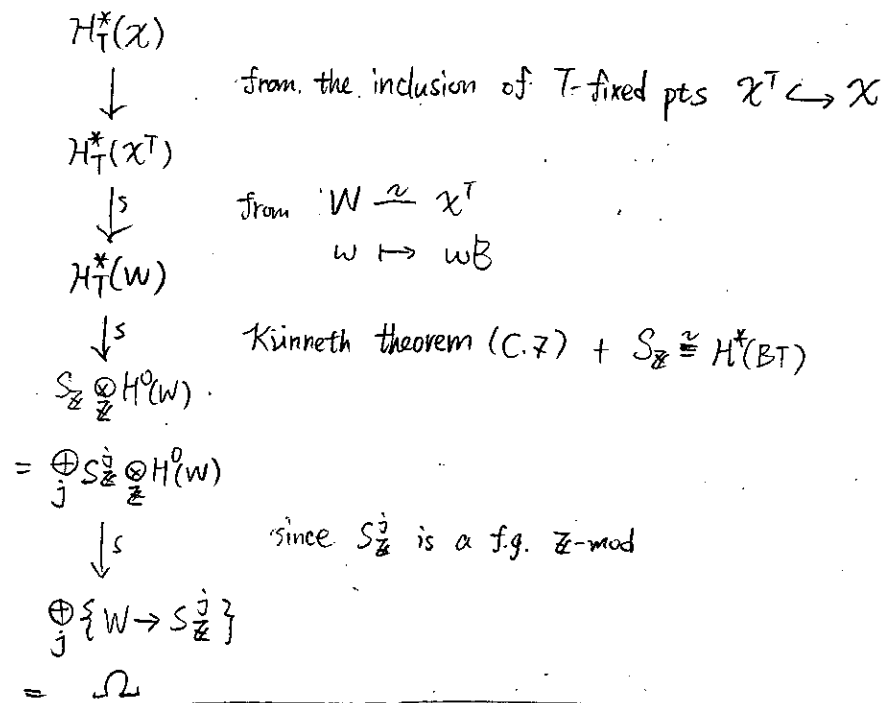 H*_T(X)
↓ from the inclusion of T-fixed pts X^T ↪ X
H*_T(X^T)
↓s from W ≃ X^T
w ↦ wB
H*_T(W)
↓s Künneth theorem (C.7) + S_ℤ ≅ H*(BT)
S_ℤ ⊗_ℤ H⁰(W)
= ⊕_j S^j_ℤ ⊗_ℤ H⁰(W)
↓s since S^j_ℤ is a f.g. ℤ-mod
⊕_j {W → S^j_ℤ}
= Ω